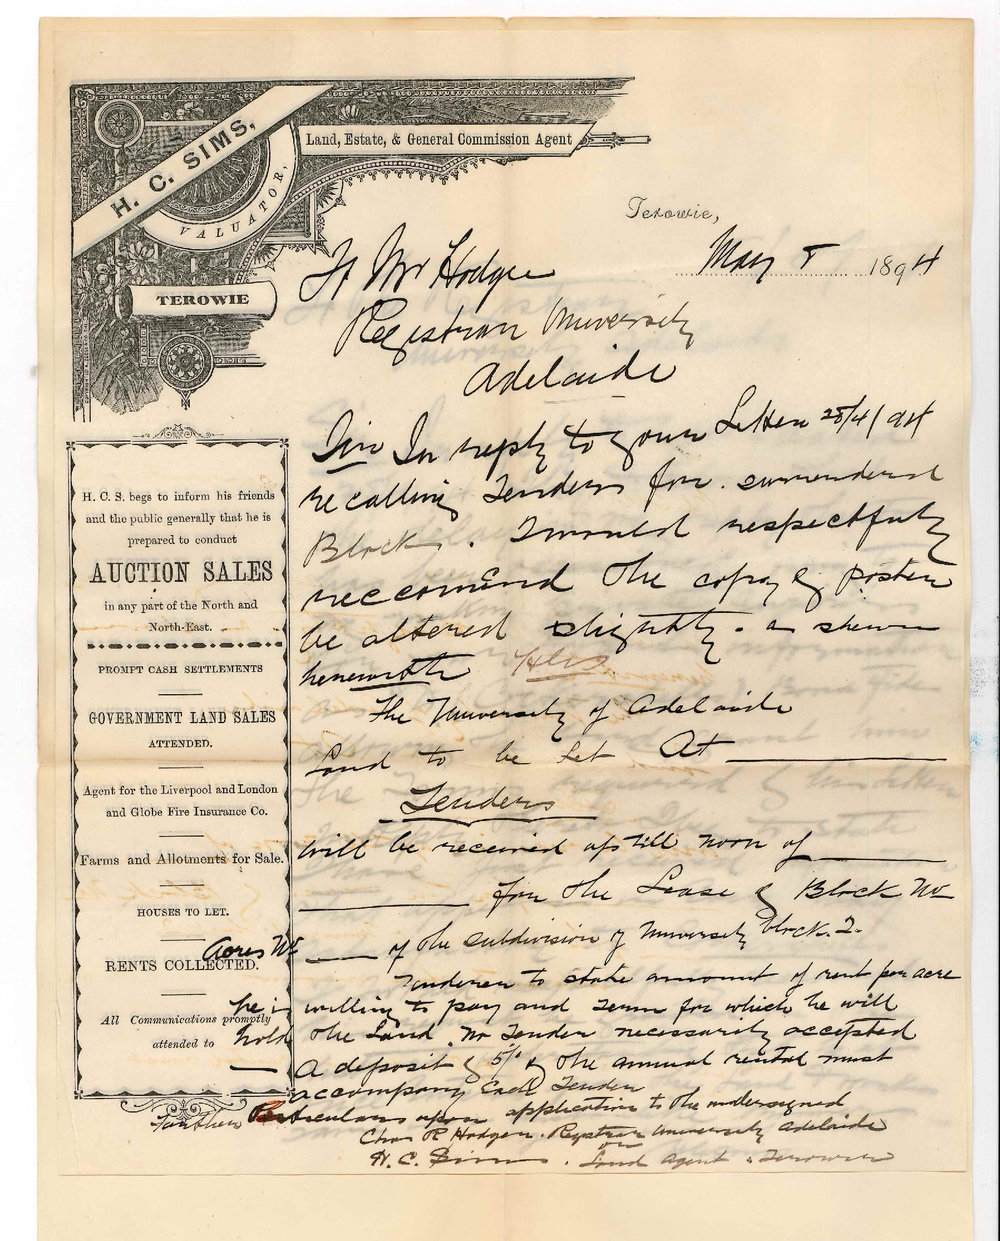 H. C. SIMS,
VALUATOR.
Land, Estate, & General Commission Agent
TEROWIE
Terowie,
May 8 1894
Mr Hodge
Registrar University
Adelaide
H. C. S. begs to inform his friends
and the public generally that he is
prepared to conduct
AUCTION SALES
in any part of the North and
North-East.
PROMPT CASH SETTLEMENTS
GOVERNMENT LAND SALES
ATTENDED.
Agent for the Liverpool and London
and Globe Fire Insurance Co.
Farms and Allotments for Sale.
HOUSES TO LET.
RENTS COLLECTED.
All Communications promptly
attended to
Sir In reply to your Letter 28/4/94
recalling Tenders for surrendered
Block. I would respectfuly
reccomend the copy of Poster
be altered slightly. as shewn
herewith HCS
The University of Adelaide
Land to be Let At
Tenders
will be received up till noon of
for the Lease of Block No
Acres No of the subdivision of University block. 2.
Tenderer to state amount of rent per acre
he is willing to pay and Term for which he will
hold the Land. No Tender necessarily accepted
A deposit of 5/- of the annual rental must
accompany Each Tender
Further Particulars upon application to the undersigned
Chas R Hodge. Registrar University Adelaide
or
H. C. Sims. Land Agent. Terowie